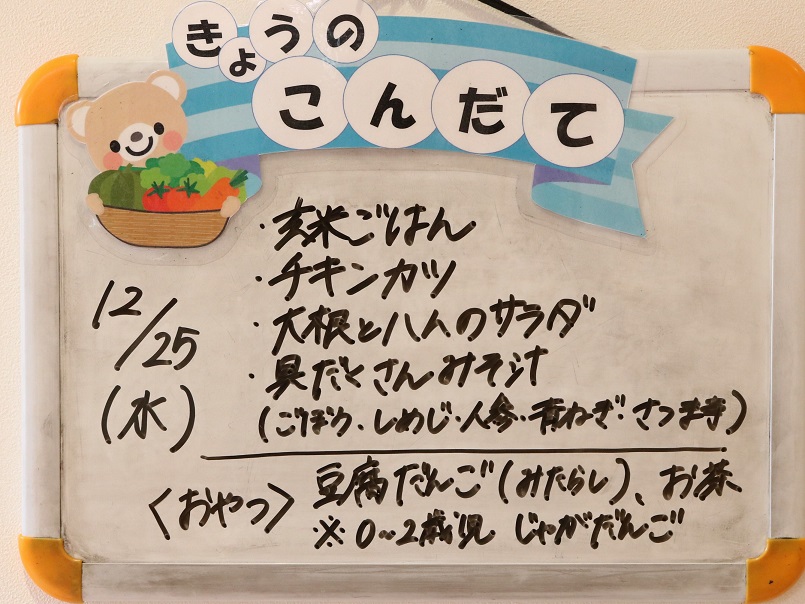 きょうの
こんだて
12/25
(水)
・玄米ごはん
・チキンカツ
・大根とハムのサラダ
・具だくさんみそ汁
(ごぼう、しめじ・人参・青ねぎ・さつま芋)
<おやつ> 豆腐だんご(みたらし)、お茶
※0~2歳児 じゃがだんご